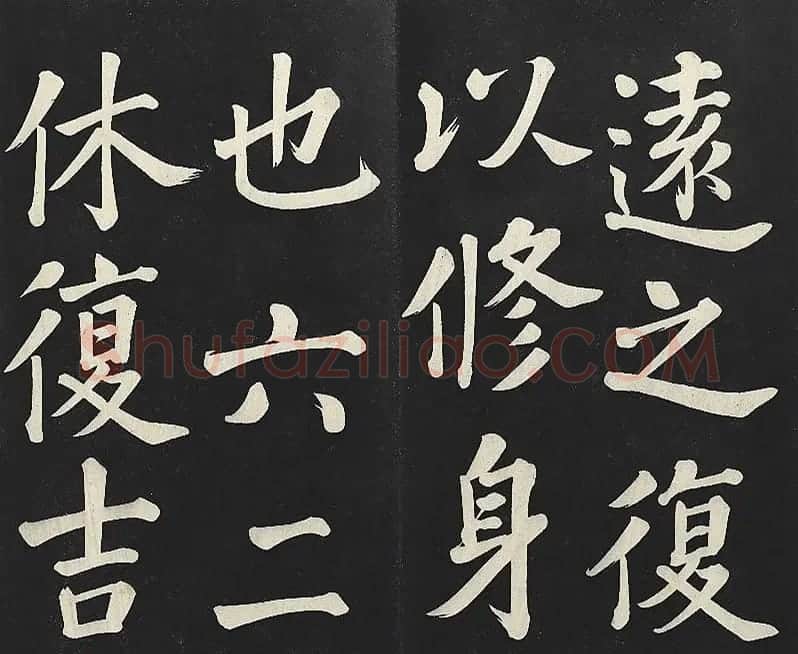 遠之復
以修身
也六二
休復吉
Shufaziliao.COM